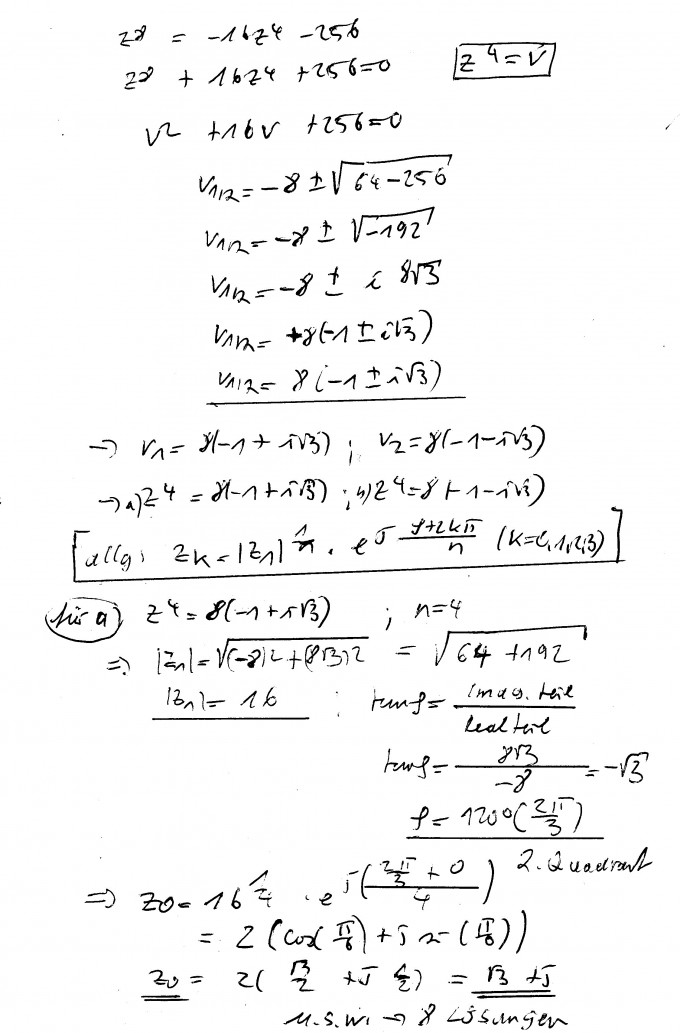 z⁸ = -16z⁴ - 256
z⁸ + 16z⁴ + 256 = 0   z⁴ = v
v² + 16v + 256 = 0
v₁/₂ = -8 ± √(64-256)
v₁/₂ = -8 ± √(-192)
v₁/₂ = -8 ± i 8√3
v₁/₂ = +8(-1 ± i√3)
v₁/₂ = 8(-1 ± i√3)
→ v₁ = 8(-1 + i√3) ; v₂ = 8(-1 - i√3)
→ a) z⁴ = 8(-1 + i√3) ; b) z⁴ = 8(-1 - i√3)
allg: z_K = |z₁|^(1/n) · e^(j (φ+2kπ)/n) (K=0,1,2,3)
für a) z⁴ = 8(-1 + i√3) ; n=4
⇒ |z₁| = √((-8)² + (8√3)²) = √(64 + 192)
|z₁| = 16 ; tan φ = Imag. teil / Realteil
tan φ = 8√3 / -8 = -√3
φ = 120° (2π/3)
2. Quadrant
⇒ z₀ = 16^(1/4) · e^(j((2π/3 + 0)/4))
= 2 (cos(π/6) + j sin(π/6))
z₀ = 2(√3/2 + j 1/2) = √3 + j
u.s.w. → 8 Lösungen